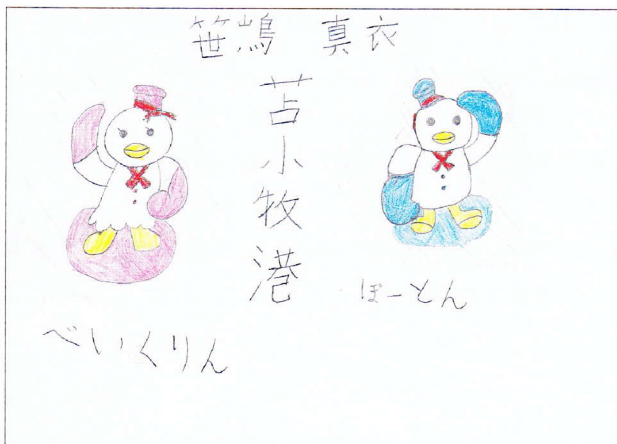 笹嶋 真衣
苫小牧港
ぽーとん
べいくりん